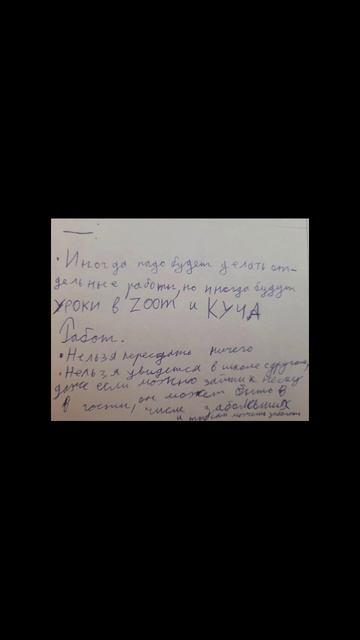 • Иногда надо будет делать от-
дельные работы, но иногда будут
уроки в ZOOM и КУЧА
Работ.
• Нельзя пересдать ничего
• Нельзя увидется в школе с другом,
даже если можно зайти к нему
в гости, он может быть в
числе заболевших
и ты сам можешь